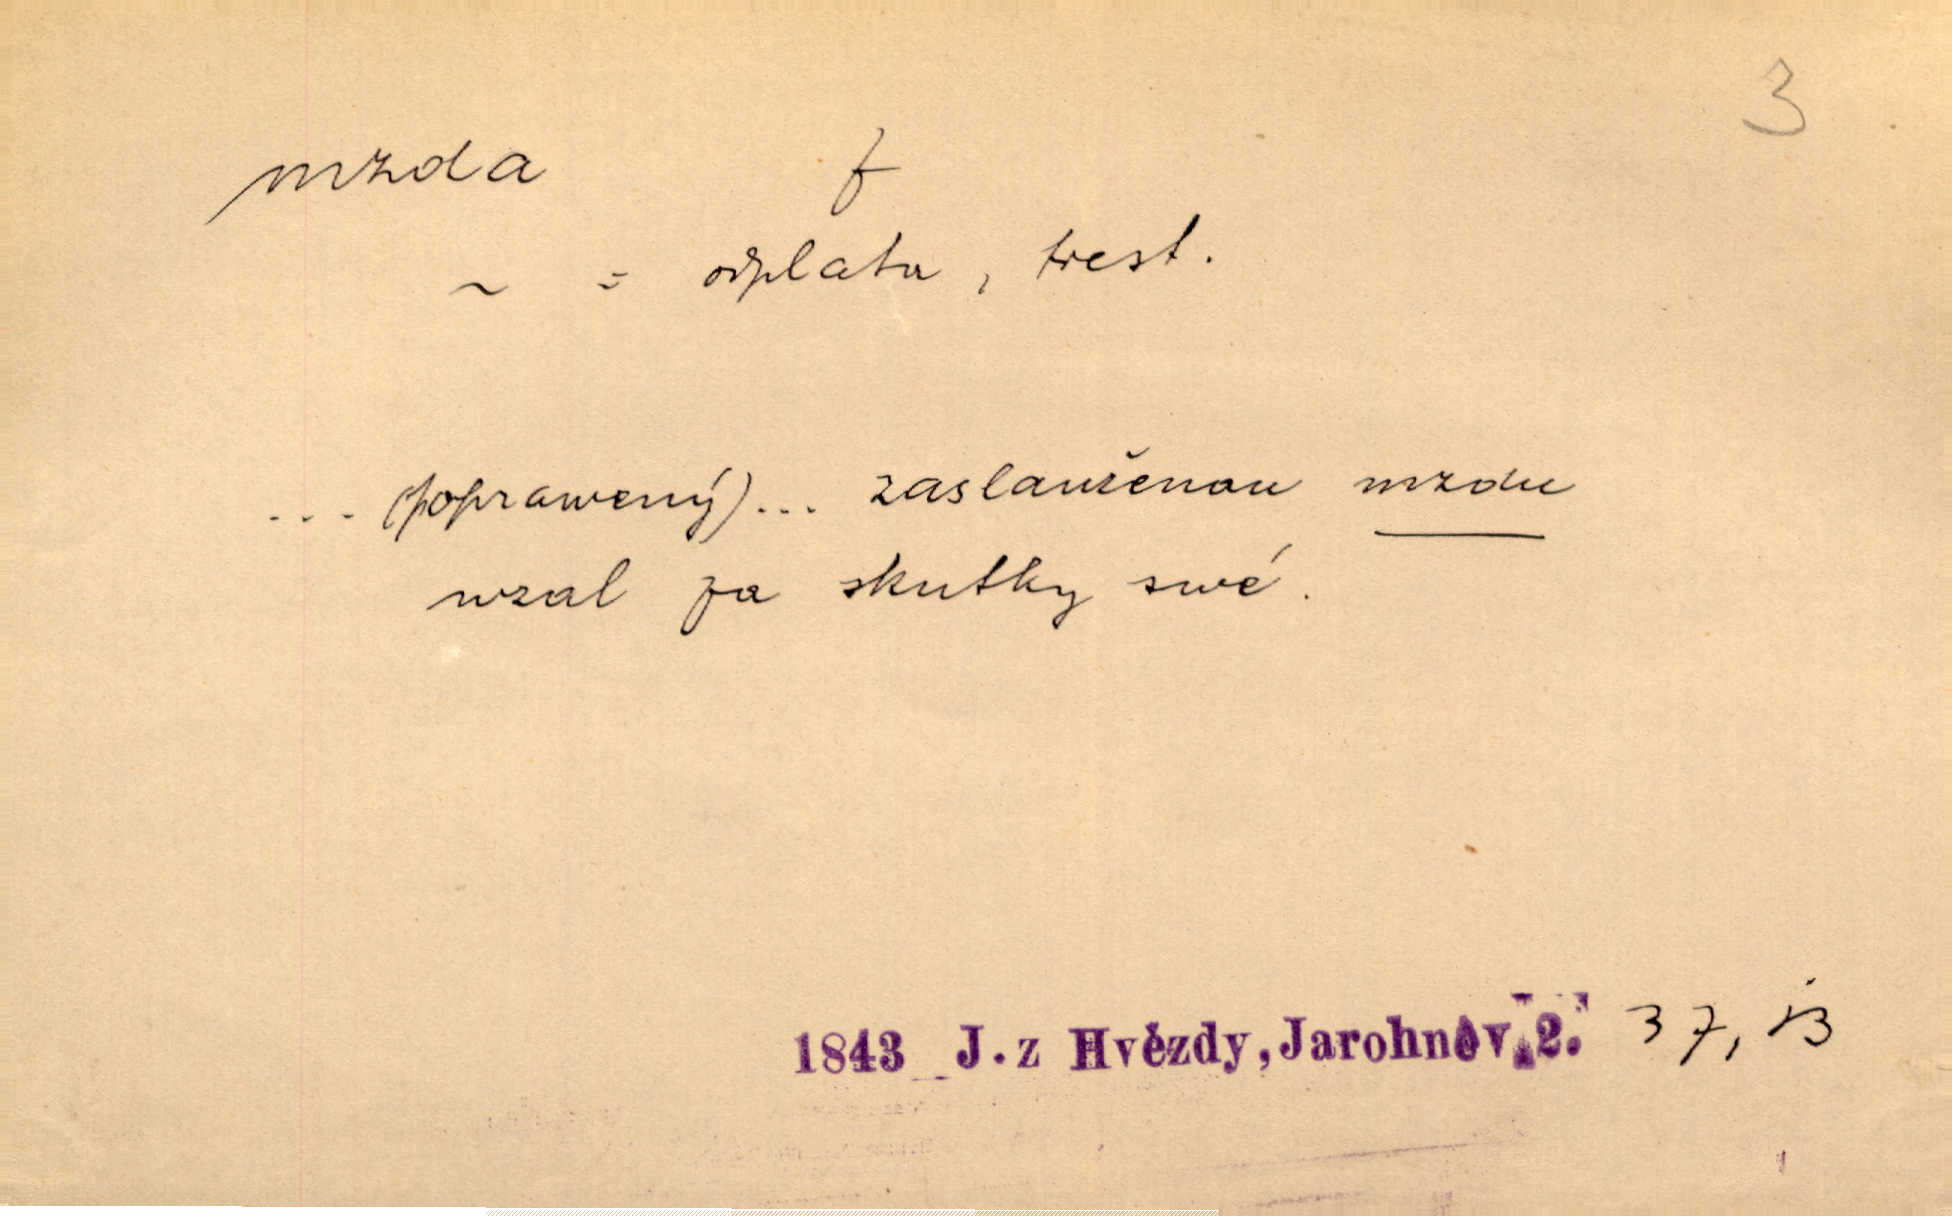 3
mzda f
~ = odplata, trest.
... (poprawený)... zaslauženau mzdu
wzal za skutky swé.
1843 J. z Hvězdy, Jarohněv 2. 37,